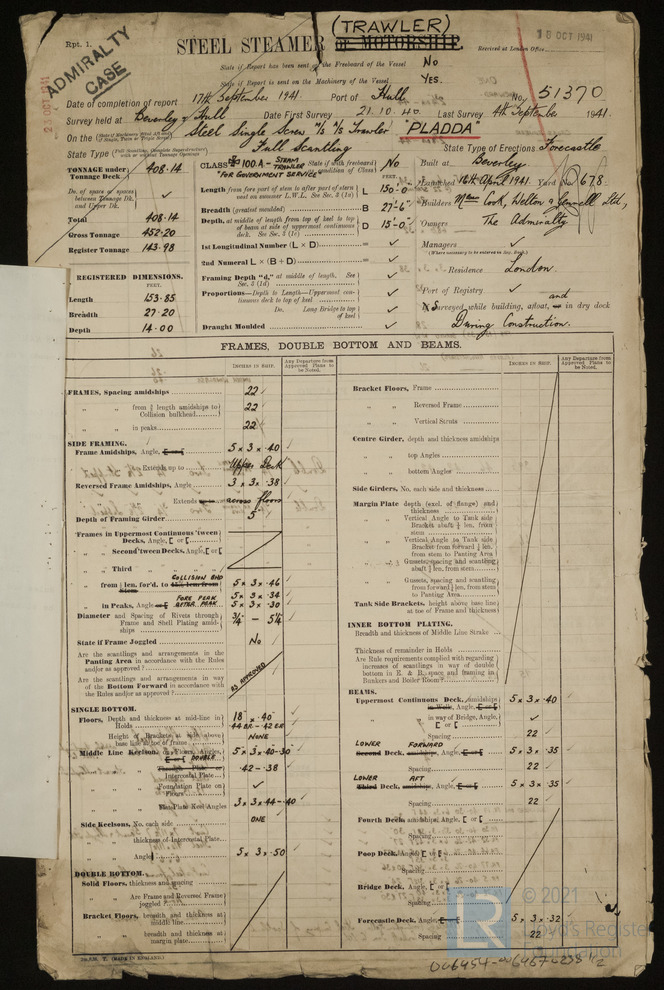 Rpt. 1.
ADMIRALTY CASE
(TRAWLER)
STEEL STEAMER OR MOTORSHIP.
18 OCT 1941
Received at London Office
State if Report has been sent on the Freeboard of the Vessel No
State if Report is sent on the Machinery of the Vessel YES.
Date of completion of report 17th September 1941. Port of Hull No. 51370
Survey held at Beverley & Hull Date First Survey 21.10.40 Last Survey 4th September 1941.
On the Steel Single Screw Trawler "PLADDA"
State Type Full Scantling State Type of Erections Forecastle
TONNAGE under Tonnage Deck 408.14
Do. of space or spaces between Tonnage Dk. and Upper Dk. ✓
Total 408.14
Gross Tonnage 452.20
Register Tonnage 143.98
REGISTERED DIMENSIONS.
FEET.
Length 153.85
Breadth 27.20
Depth 14.00
CLASS 100.A- STEAM TRAWLER State if with freeboard condition of Class No
"FOR GOVERNMENT SERVICE"
Length from fore part of stem to after part of stern post on summer L.W.L. See Sec. 3 (1a) L 150.0
Breadth (greatest moulded) B 27'-6"
Depth, at middle of length from top of keel to top of beam at side of uppermost continuous deck. See Sec. 3 (1c) D 15'-0"
1st Longitudinal Number (L × D) = ✓
2nd Numeral L × (B + D) = ✓
Framing Depth "d," at middle of length. See Sec. 3 (1d) ✓
Proportions—Depth to Length—Uppermost continuous deck to top of keel ✓
Do. Long Bridge to top of keel ✓
Draught Moulded ✓
Built at Beverley
Launched 16th April 1941 Yard No. 678
Builders Messrs Cook, Welton & Gemmell Ltd,
Owners The Admiralty
Managers ✓
(Where necessary to be entered in Reg. Book)
Residence London.
Port of Registry ✓
Surveyed while building, afloat, or and in dry dock
During Construction.
FRAMES, DOUBLE BOTTOM AND BEAMS.
INCHES IN SHIP.
Any Departure from Approved Plans to be Noted.
INCHES IN SHIP.
Any Departure from Approved Plans to be Noted.
FRAMES, Spacing amidships 22
" " from ¾ length amidships to Collision bulkhead 22
" " in peaks 22
SIDE FRAMING.
Frame Amidships, Angle, [ or [ 5 × 3 × .40
" " Extends up to Upper Deck
Reversed Frame Amidships, Angle 3 × 3 × .38
" " Extends across floors
Depth of Framing Girder 5"
Frames in Uppermost Continuous 'tween Decks, Angle, [ or [
" " Second 'tween Decks, Angle, [ or [
" " Third "
" " from ½ len. for'd. to COLLISION BHD 5 × 3 × .46
" " in Peaks, Angle FORE PEAK 5 × 3 × .34
AFTER PEAK 5 × 3 × .30
Diameter and Spacing of Rivets through Frame and Shell Plating amidships ¾ - 5¼
State if Frame Joggled No
Are the scantlings and arrangements in the Panting Area in accordance with the Rules and/or as approved?
AS APPROVED
Are the scantlings and arrangements in way of the Bottom Forward in accordance with the Rules and/or as approved?
SINGLE BOTTOM.
Floors, Depth and thickness at mid-line in Holds 18" × .40"
.44 BR - .42 ER
Height of Brackets at side above base line to toe of frame NONE
Middle Line Keelson, on Floors, Angles, [ or [ DOUBLE 5 × 3 × .40-.30
" " Intercostal Plate .42 - .38
" " Foundation Plate on Floors ✓
" " Flat Plate Keel Angles 3 × 3 × .44 - .40
Side Keelsons, No. each side ONE
" " thickness of Intercostal Plate
" " Angles 5 × 3 × .50
DOUBLE BOTTOM.
Solid Floors, thickness and spacing
" " Are Frame and Reversed Frame joggled?
Bracket Floors, breadth and thickness at middle line
" " breadth and thickness at margin plate
Bracket Floors, Frame
" " Reversed Frame
" " Vertical Struts
Centre Girder, depth and thickness amidships
" " top Angles
" " bottom Angles
Side Girders, No. each side and thickness
Margin Plate depth (excl. of flange) and thickness
" " Vertical Angle to Tank side Bracket abaft ¼ len. from stem
" " Vertical Angle to Tank side Bracket from forward ¼ len. from stem to Panting Area
" " Gussets, spacing and scantling abaft ¼ len. from stem
" " Gussets, spacing and scantling from forward ¼ len. from stem to Panting Area
Tank Side Brackets, height above base line at toe of Frame and thickness
INNER BOTTOM PLATING.
Breadth and thickness of Middle Line Strake
Thickness of remainder in Holds
Are Rule requirements complied with regarding increases of scantling in way of double bottom in E. & B. space and framing in Bunkers and Boiler Room?
BEAMS.
Uppermost Continuous Deck, amidships in Wells, Angle, [ or [ 5 × 3 × .40
" " in way of Bridge, Angle, [ or [ ✓
Spacing 22
LOWER FORWARD
Second Deck, amidships, Angle, [ or [ 5 × 3 × .35
Spacing 22
LOWER AFT
Third Deck, amidships, Angle, [ or [ 5 × 3 × .35
Spacing 22
Fourth Deck, amidships, Angle, [ or [
Spacing
Poop Deck, Angle, [ or [
Spacing
Bridge Deck, Angle, [ or [
Spacing
Forecastle Deck, Angle, [ or [ 5 × 3 × .32
Spacing 22
© 2021
Lloyd's Register
Foundation